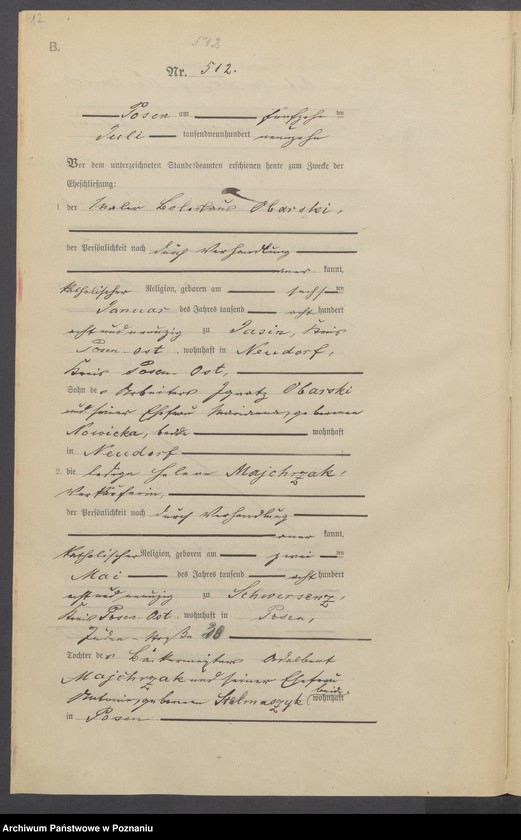 12
B.
512
Nr. 512.
Posen am fünfzehn ten
Juli tausendneunhundert neunzehn
Vor dem unterzeichneten Standesbeamten erschienen heute zum Zwecke der
Eheschließung:
1. der Maler Boleslaus Obarski,
der Persönlichkeit nach durch Verhandlung
aner kannt,
katholischer Religion, geboren am sechsten
Januar des Jahres tausend acht hundert
acht und neunzig zu Jasin, Kreis
Posen-Ost, wohnhaft in Neudorf,
Kreis Posen-Ost,
Sohn des Arbeiters Ignatz Obarski
und seiner Ehefrau Marianna, geborenen
Nowicka, beide wohnhaft
in Neudorf
2. die ledige Helene Majchrzak,
Verkäuferin,
der Persönlichkeit nach durch Verhandlung
aner kannt,
katholischer Religion, geboren am zwei ten
Mai des Jahres tausend acht hundert
acht und neunzig zu Schwersenz,
Kreis Posen-Ost, wohnhaft in Posen,
Juden-Straße
Tochter des Bäckermeisters Adalbert
Majchrzak und seiner Ehefrau
Antonie, geborenen Stelmaszyk beide wohnhaft
in Posen
Archiwum Państwowe w Poznaniu